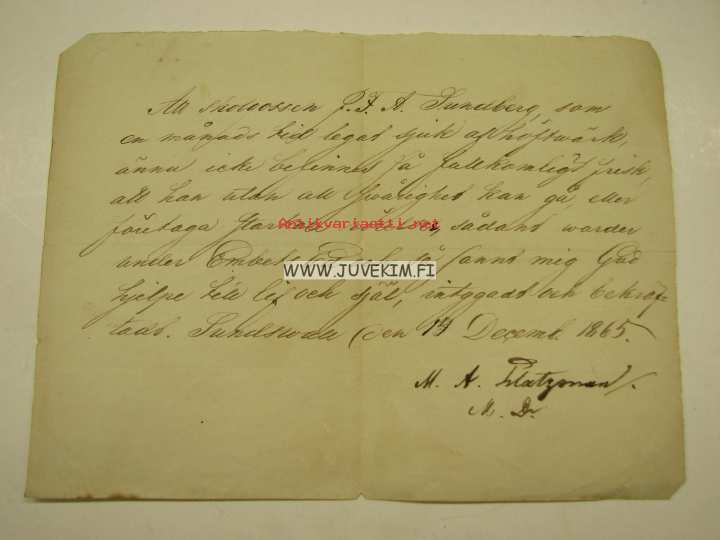 Att P. F. A. Sundberg, som
en månads tid legat sjuk af höftwärk,
ännu icke befinnes så fullkomligt frisk,
att han utan all swårighet kan gå eller
företaga resor, sådant warder
under Embets så sannt mig Gud
hjelpe till lif och själ, intygadt och bekräf-
tadt. Sundswall den 14 Decemb. 1865.
M. A.
M. Dr
Antikvariaatti.net
WWW.JUVEKIM.FI